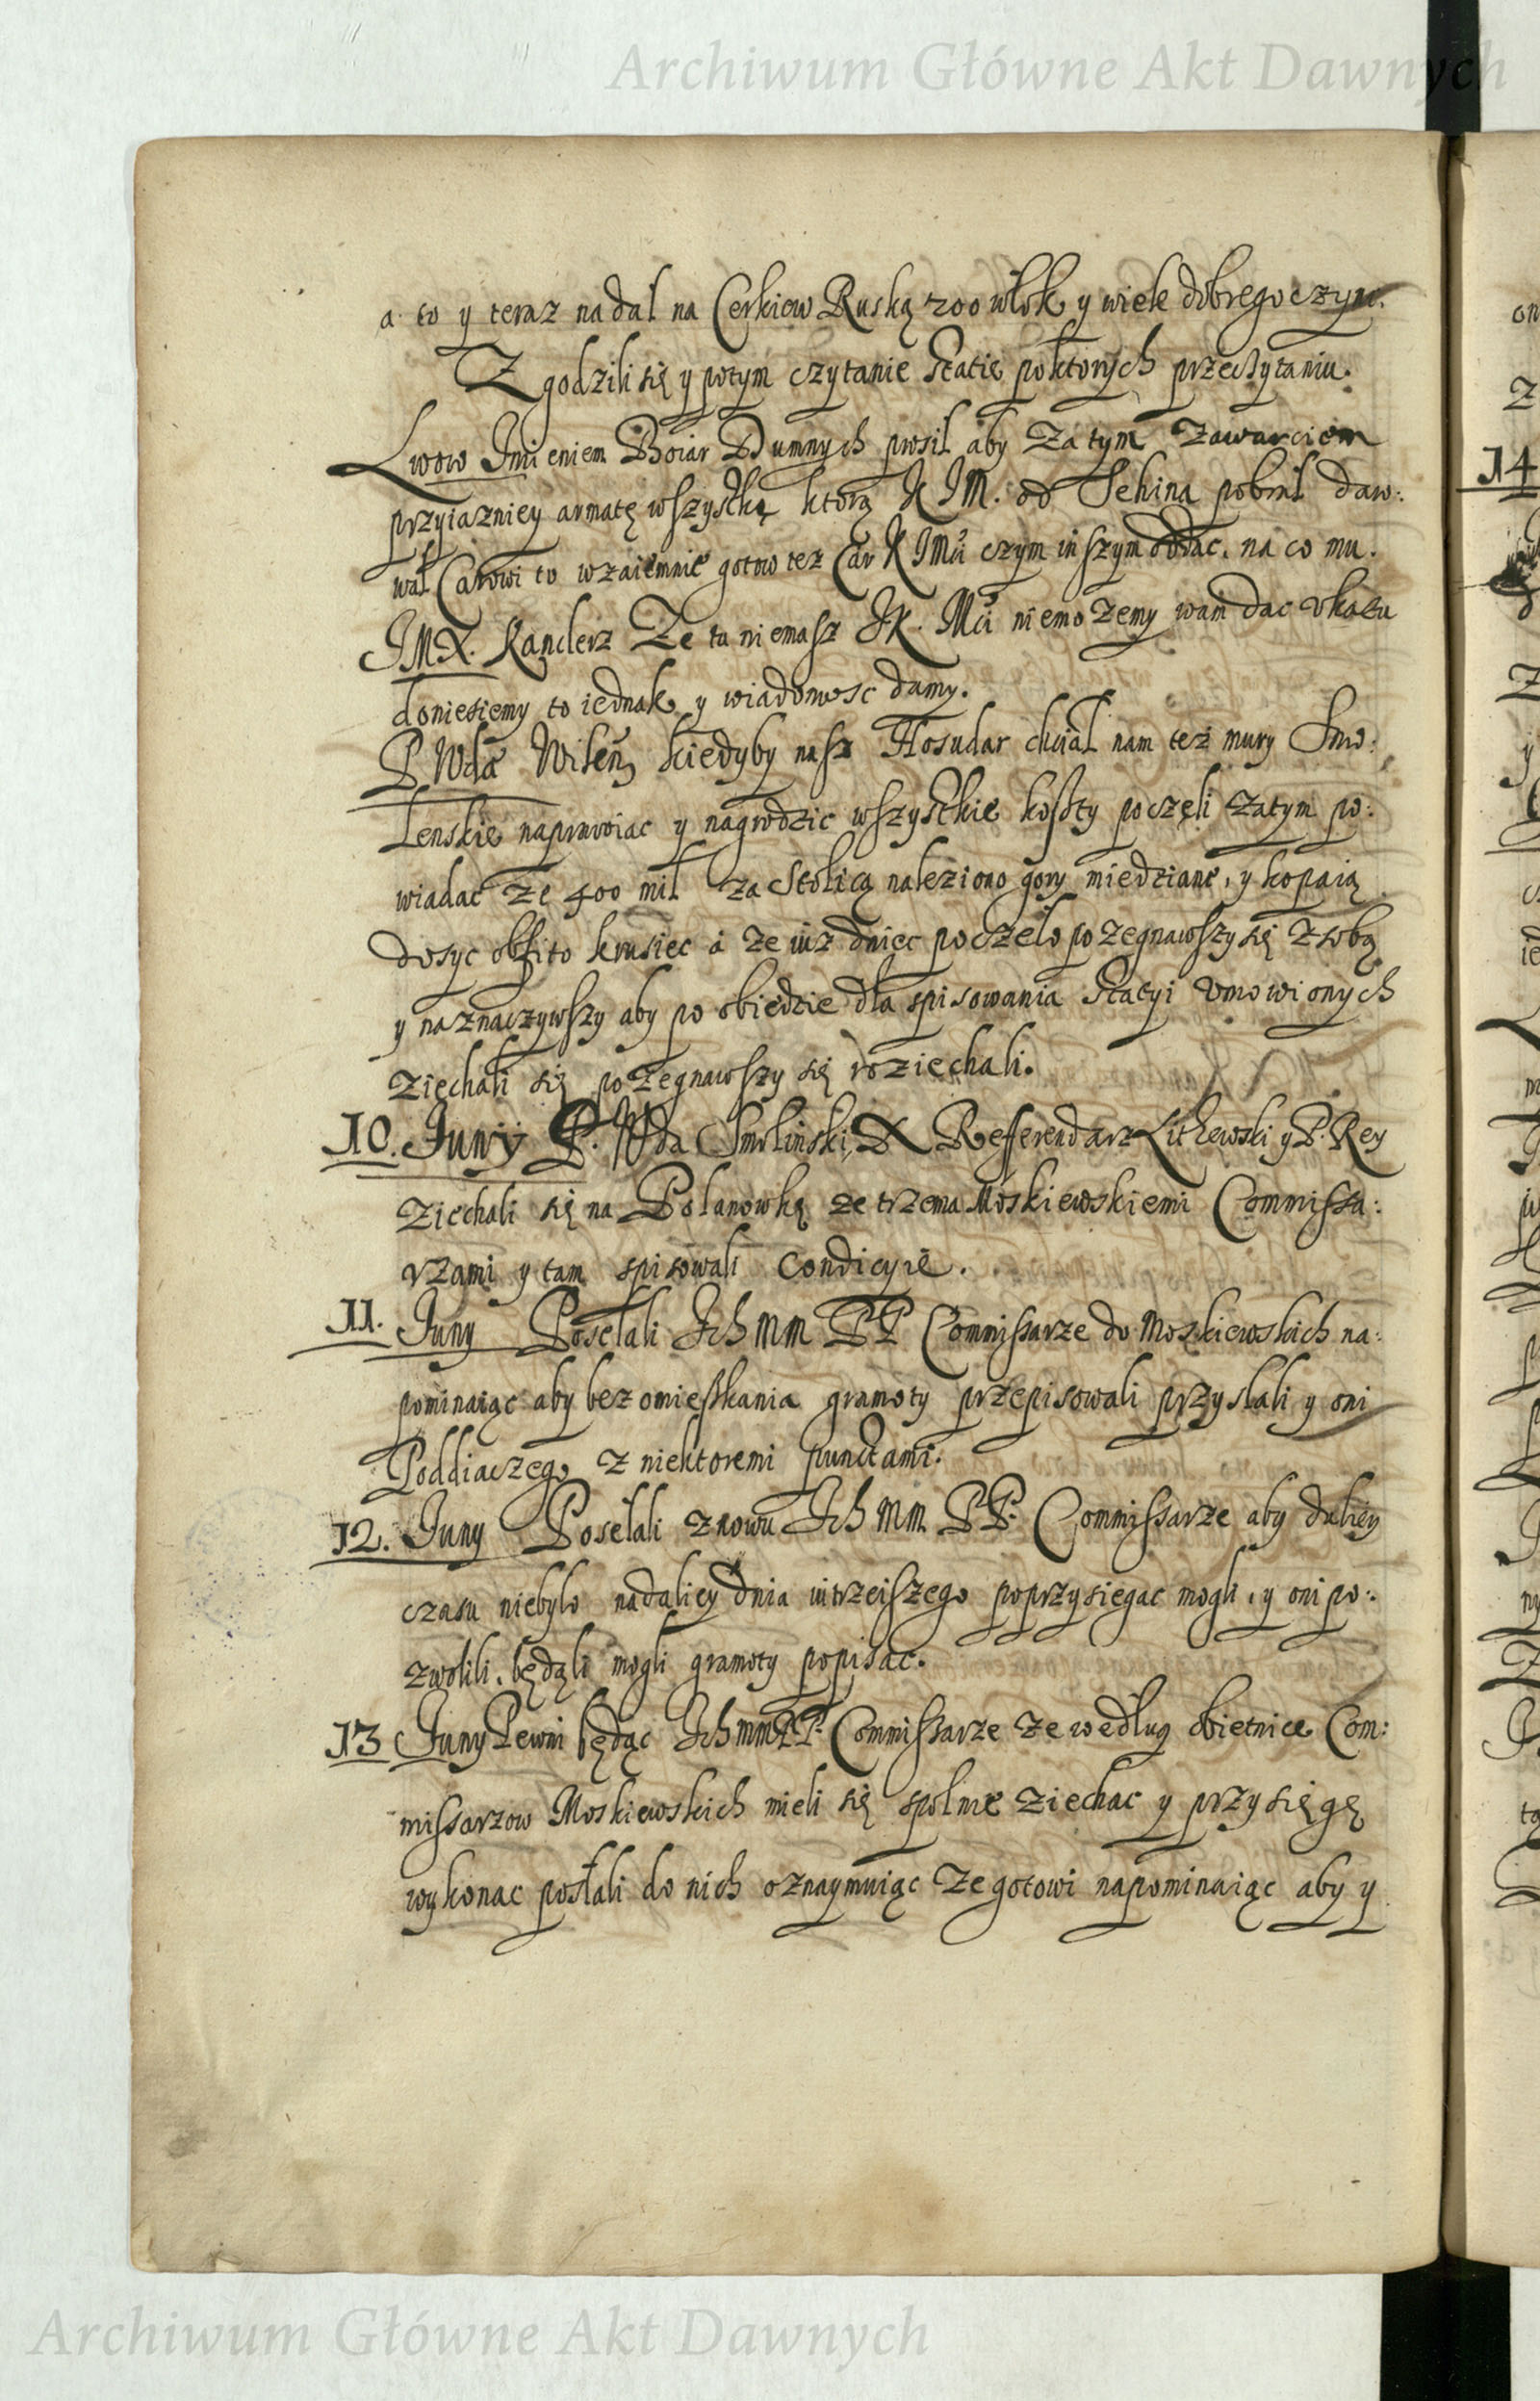 Archiwum Główne Akt Dawnych
a to y teraz nadał na Cerkiew Ruską 200 włok y wiele dobrego czyni.
Zgodzili się y potym czytanie Statię poktorych przeczytaniu.
Lwow Imieniem Boiar Dumnych prosił aby za tym zawarciem
przyiazniey armatę wszystką ktorą K I M. od Sehina pobrał daro:
wał Carowi to wzaiemnie gotow tez Car K IMci czym inszym oddac. na co mu.
IMX. Kanclerz Ze tu niemasz JK. Mci niemozemy wam dac vkazu
doniesiemy to iednak y wiadomosc damy.
P Wda Wileń kiedyby nasz Hosudar chciał nam tez mury Smo:
lenskie naprawiac y nagrodzic wszystkie koszty poczęli zatym po:
wiadac ze 400 mil za Stolicą naleziono gory miedziane, y kopaią
dosyc obfito krusiec a ze iuz dniec poczeło pozegnawszy się z sobą
y naznaczywszy aby po obiedzie dla spisowania Stacyi vmowionych
ziechali się pozegnawszy się roziechali.
10. Juny P. Wda Smolinski, X Refferendarz Lithewski y P. Rey
ziechali się na Polanowką ze trzema Moskiewskiemi Commissa:
rzami y tam spisowali Condicyie.
11. Juny Posełali Ich MM PP Commissarze do Moskiewskich na:
pominaiąc aby bez omieszkania gramoty przepisowali przysłali y oni
Poddiaczego z niektoremi punctami.
12. Juny Posełali znowu Ich MM. PP. Commissarze aby daliey
czasu niebyło nadaliey dnia iutrzeiszego poprzysiegac mogli, y oni po:
zwolili, będąli mogli gramoty popisac.
13 Juny Pewni będąc Ich MM PP. Commissarze ze według obietnice Com:
missarzow Moskiewskich mieli się społnie ziechac y przysięgę
wykonac posłali do nich oznaymuiąc ze gotowi napominaiąc aby y
Archiwum Główne Akt Dawnych